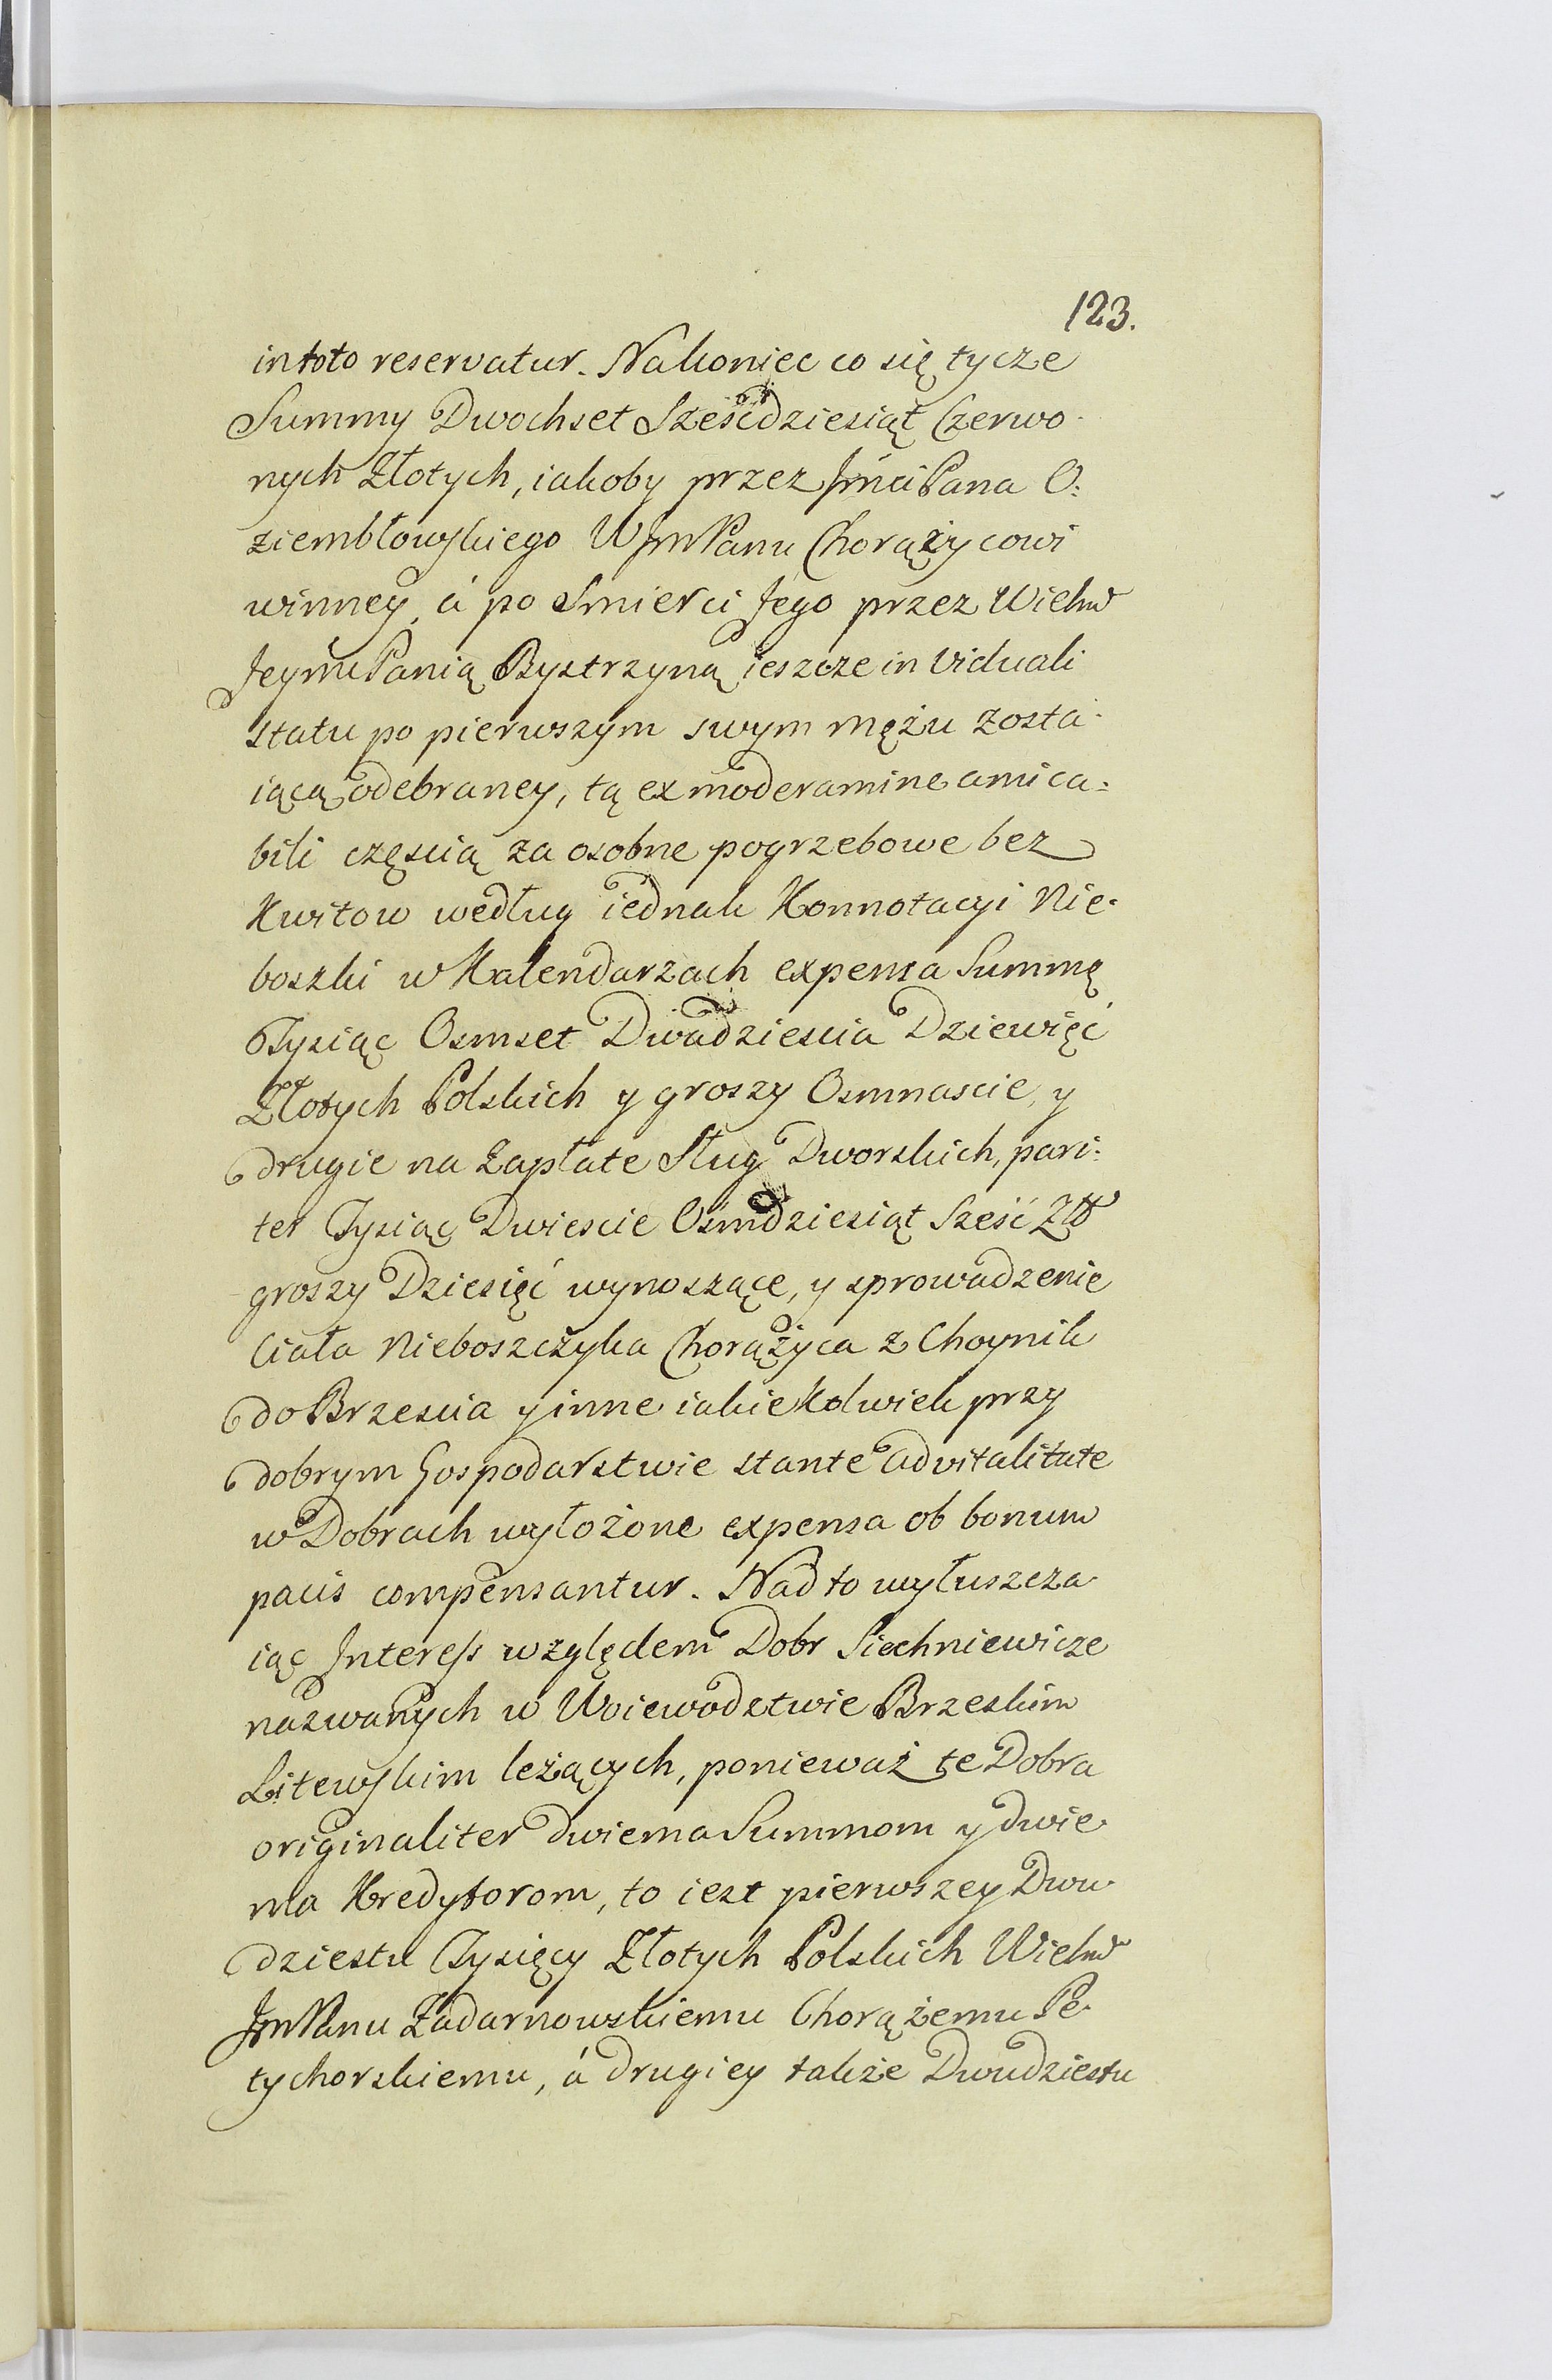 123.
in toto reservatur. Nakoniec co się tycze
Summy Dwochset Sześćdziesiąt Czerwo-
nych Złotych, iakoby przez Jmći Pana O:
ziembłowskiego W Jmć Panu Chorążycowi
winney, á po Smierci Jego przez Wielm
Jeymć Panią Bystrzyną ieszcze in viduali
statu po pierwszym swym mężu zosta-
iącą odebraney, tą ex moderamine amica:
bili częscią za osobne pogrzebowe bez
Kwitow według iednak Konnotacyi Nie-
boszki w Kalendarzach expensa Summę
Tysiąc Osmset Dwadziescia Dziewięć
Złotych Polskich y groszy Osmnascie, y
drugie na Zapłate Sług Dworskich, pari:
ter Tysiąc Dwiescie Ośmdziesiąt Sześć Zł
groszy Dziesięć wynoszące, y sprowadzenie
Ciała Nieboszczyka Chorążyca z Choynik
do Brzescia y inne iakiekolwiek przy
dobrym Gospodarstwie stante advitalitate
w Dobrach wyłożone expensa ob bonum
pacis compensantur. Nad to wyłuszcza-
iąc Interess względem Dobr Siechniewicze
nazwanych w Woiewodztwie Brzeskim
Litewskim leżących, ponieważ te Dobra
originaliter dwiema Summom y dwie-
ma Kredytorom, to iest pierwszey Dwu-
dziestu Tysięcy Złotych Polskich Wielm
Jmć Panu Zadarnowskiemu Chorążemu Pe-
tychorskiemu, á drugiey także Dwudziestu